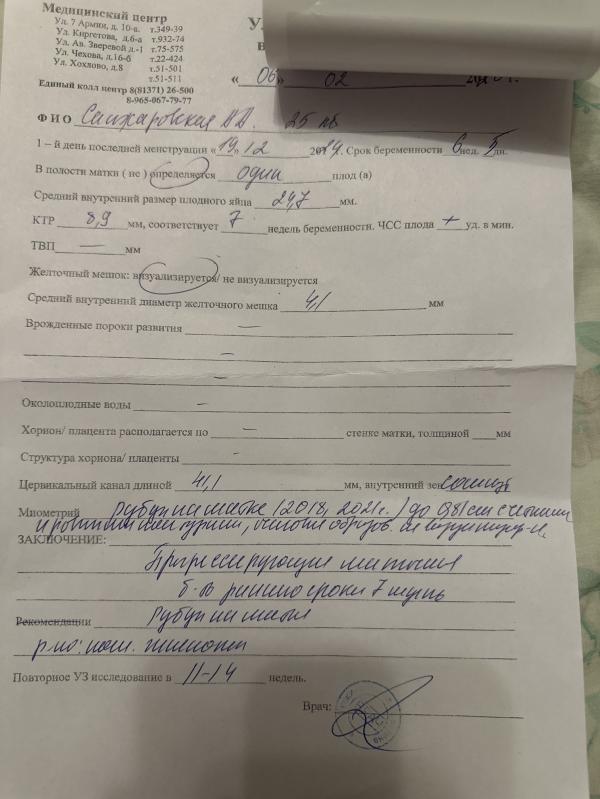 Медицинский центр
Ул. 7 Армии, д. 10-а. т.349-39
Ул. Киргетова, д.6-а т.932-74
Ул. Ав. Зверевой д.-1 т.75-575
Ул. Чехова, д.16-б т.22-424
Ул. Хохлово, д.8 т.51-501
т.51-511
Единый колл центр 8(81371) 26-500
8-965-067-79-77
« 06 » 02
Ф И О 25 лв
1 – й день последней менструации « 19 » 12 20 г. Срок беременности 6 нед. 5 дн.
В полости матки ( не ) определяется один плод (а)
Средний внутренний размер плодного яйца 24,7 мм.
КТР 8,9 мм, соответствует 7 недель беременности. ЧСС плода + уд. в мин.
ТВП — мм
Желточный мешок: визуализируется/ не визуализируется
Средний внутренний диаметр желточного мешка 4,1 мм
Врожденные пороки развития —
–
–
Околоплодные воды –
Хорион/ плацента располагается по – стенке матки, толщиной мм
Структура хориона/ плаценты –
Цервикальный канал длиной 41,1 мм, внутренний зев сомкнут
Миометрий рубец на матке (2018, 2021г.) до 0,81 см с четкими
и ровными контурами,
ЗАКЛЮЧЕНИЕ:
Прогрессирующая маточная
б-ть раннего срока 7 недель
Рекомендации Рубец на матке
Повторное УЗ исследование в 11-14 недель.
Врач: